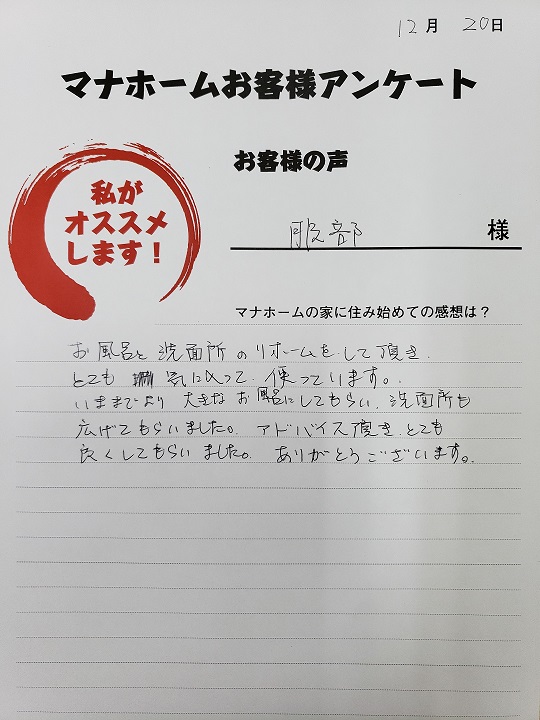 12月 20日
マナホームお客様アンケート
私が
オススメ
します!
お客様の声
服部 様
マナホームの家に住み始めての感想は?
お風呂と洗面所のリホームをして頂き、
とても 気に入って、使っています。
いままでより 大きなお風呂にしてもらい、洗面所も
広げてもらいました。アドバイス頂き、とても
良くしてもらいました。ありがとうございます。